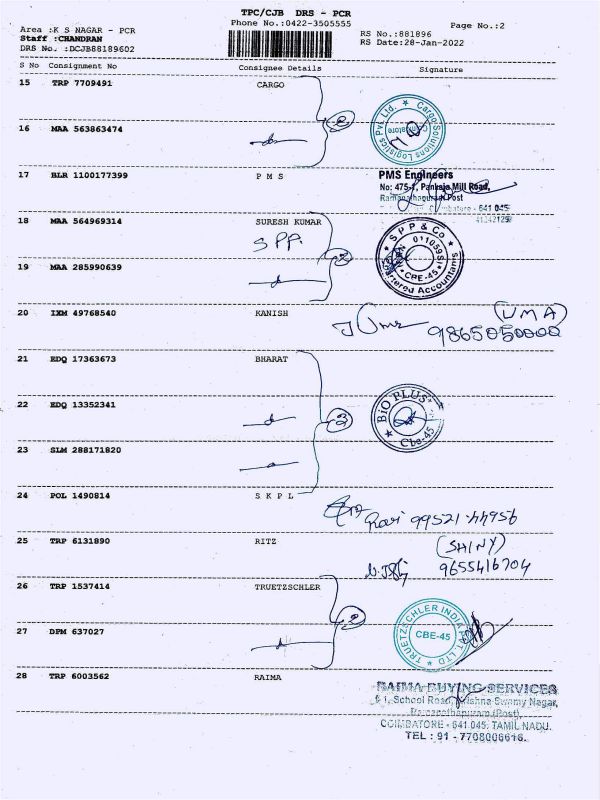 TPC/CJB DRS - PCR
Phone No.:0422-3505555
Page No.:2
Area :K S NAGAR - PCR
Staff :CHANDRAN
DRS No. :DCJB88189602
RS No.:881896
RS Date:28-Jan-2022
S No Consignment No Consignee Details Signature
15 TRP 7709491 CARGO
Cargo Solutions Logistics Pvt Ltd.
Coimbatore
16 MAA 563863474
17 BLR 1100177399 P M S
PMS Engineers
No: 475-1, Pankaja Mill Road,
Ramanathapuram Post
Coimbatore - 641 045
18 MAA 564969314 SURESH KUMAR
SPP.
S P P & Co
011059S
CBE-45
Chartered Accountants
19 MAA 285990639
20 IXM 49768540 KANISH
Uma
(UMA)
9865050000
21 EDQ 17363673 BHARAT
22 EDQ 13352341
3
BIO PLUS
Cbe-45
23 SLM 288171820
24 POL 1490814 S K P L
Ravi 99521 44956
25 TRP 6131890 RITZ
(SHINY)
9655416704
26 TRP 1537414 TRUETZSCHLER
2
TRUETZSCHLER INDIA PVT. LTD
CBE-45
27 DPM 637027
28 TRP 6003562 RAIMA
RAIMA BUYING SERVICES
# 1, School Road, Krishna Swamy Nagar,
Ramanathapuram (Post),
COIMBATORE - 641 045. TAMIL NADU.
TEL : 91 - 7708006616.